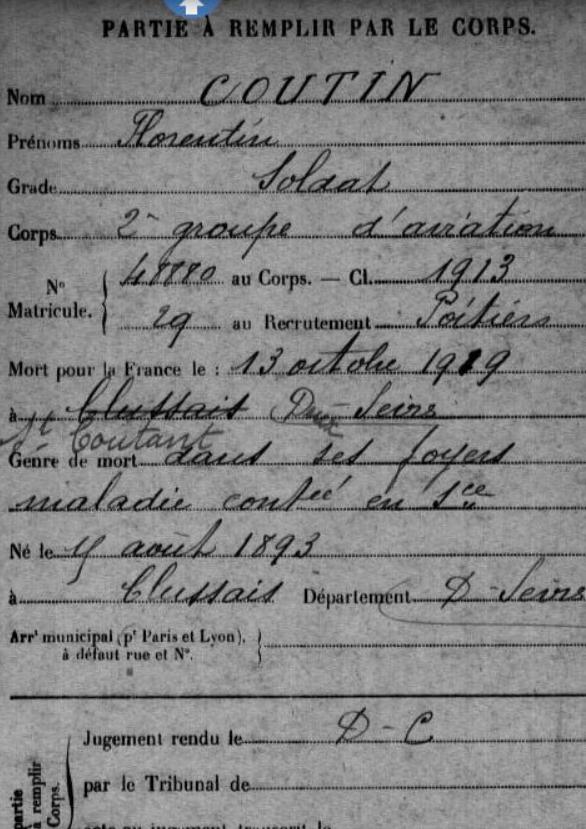 PARTIE À REMPLIR PAR LE CORPS.
Nom COUTIN
Prénoms Florentin
Grade Soldat
Corps 2e groupe d'aviation
Nº Matricule. 48880 au Corps. — Cl. 1913
29 au Recrutement Poitiers
Mort pour la France le : 13 octobre 1919
à Clussais Dx Sèvres
St Coutant
Genre de mort dans ses foyers
maladie contée en sce
Né le août 1893
à Clussais Département D-Sèvres
Arrt municipal (pr Paris et Lyon),
à défaut rue et Nº.
Jugement rendu le D-C
par le Tribunal de
acte ou jugement transcrit le
partie
à remplir
Corps.